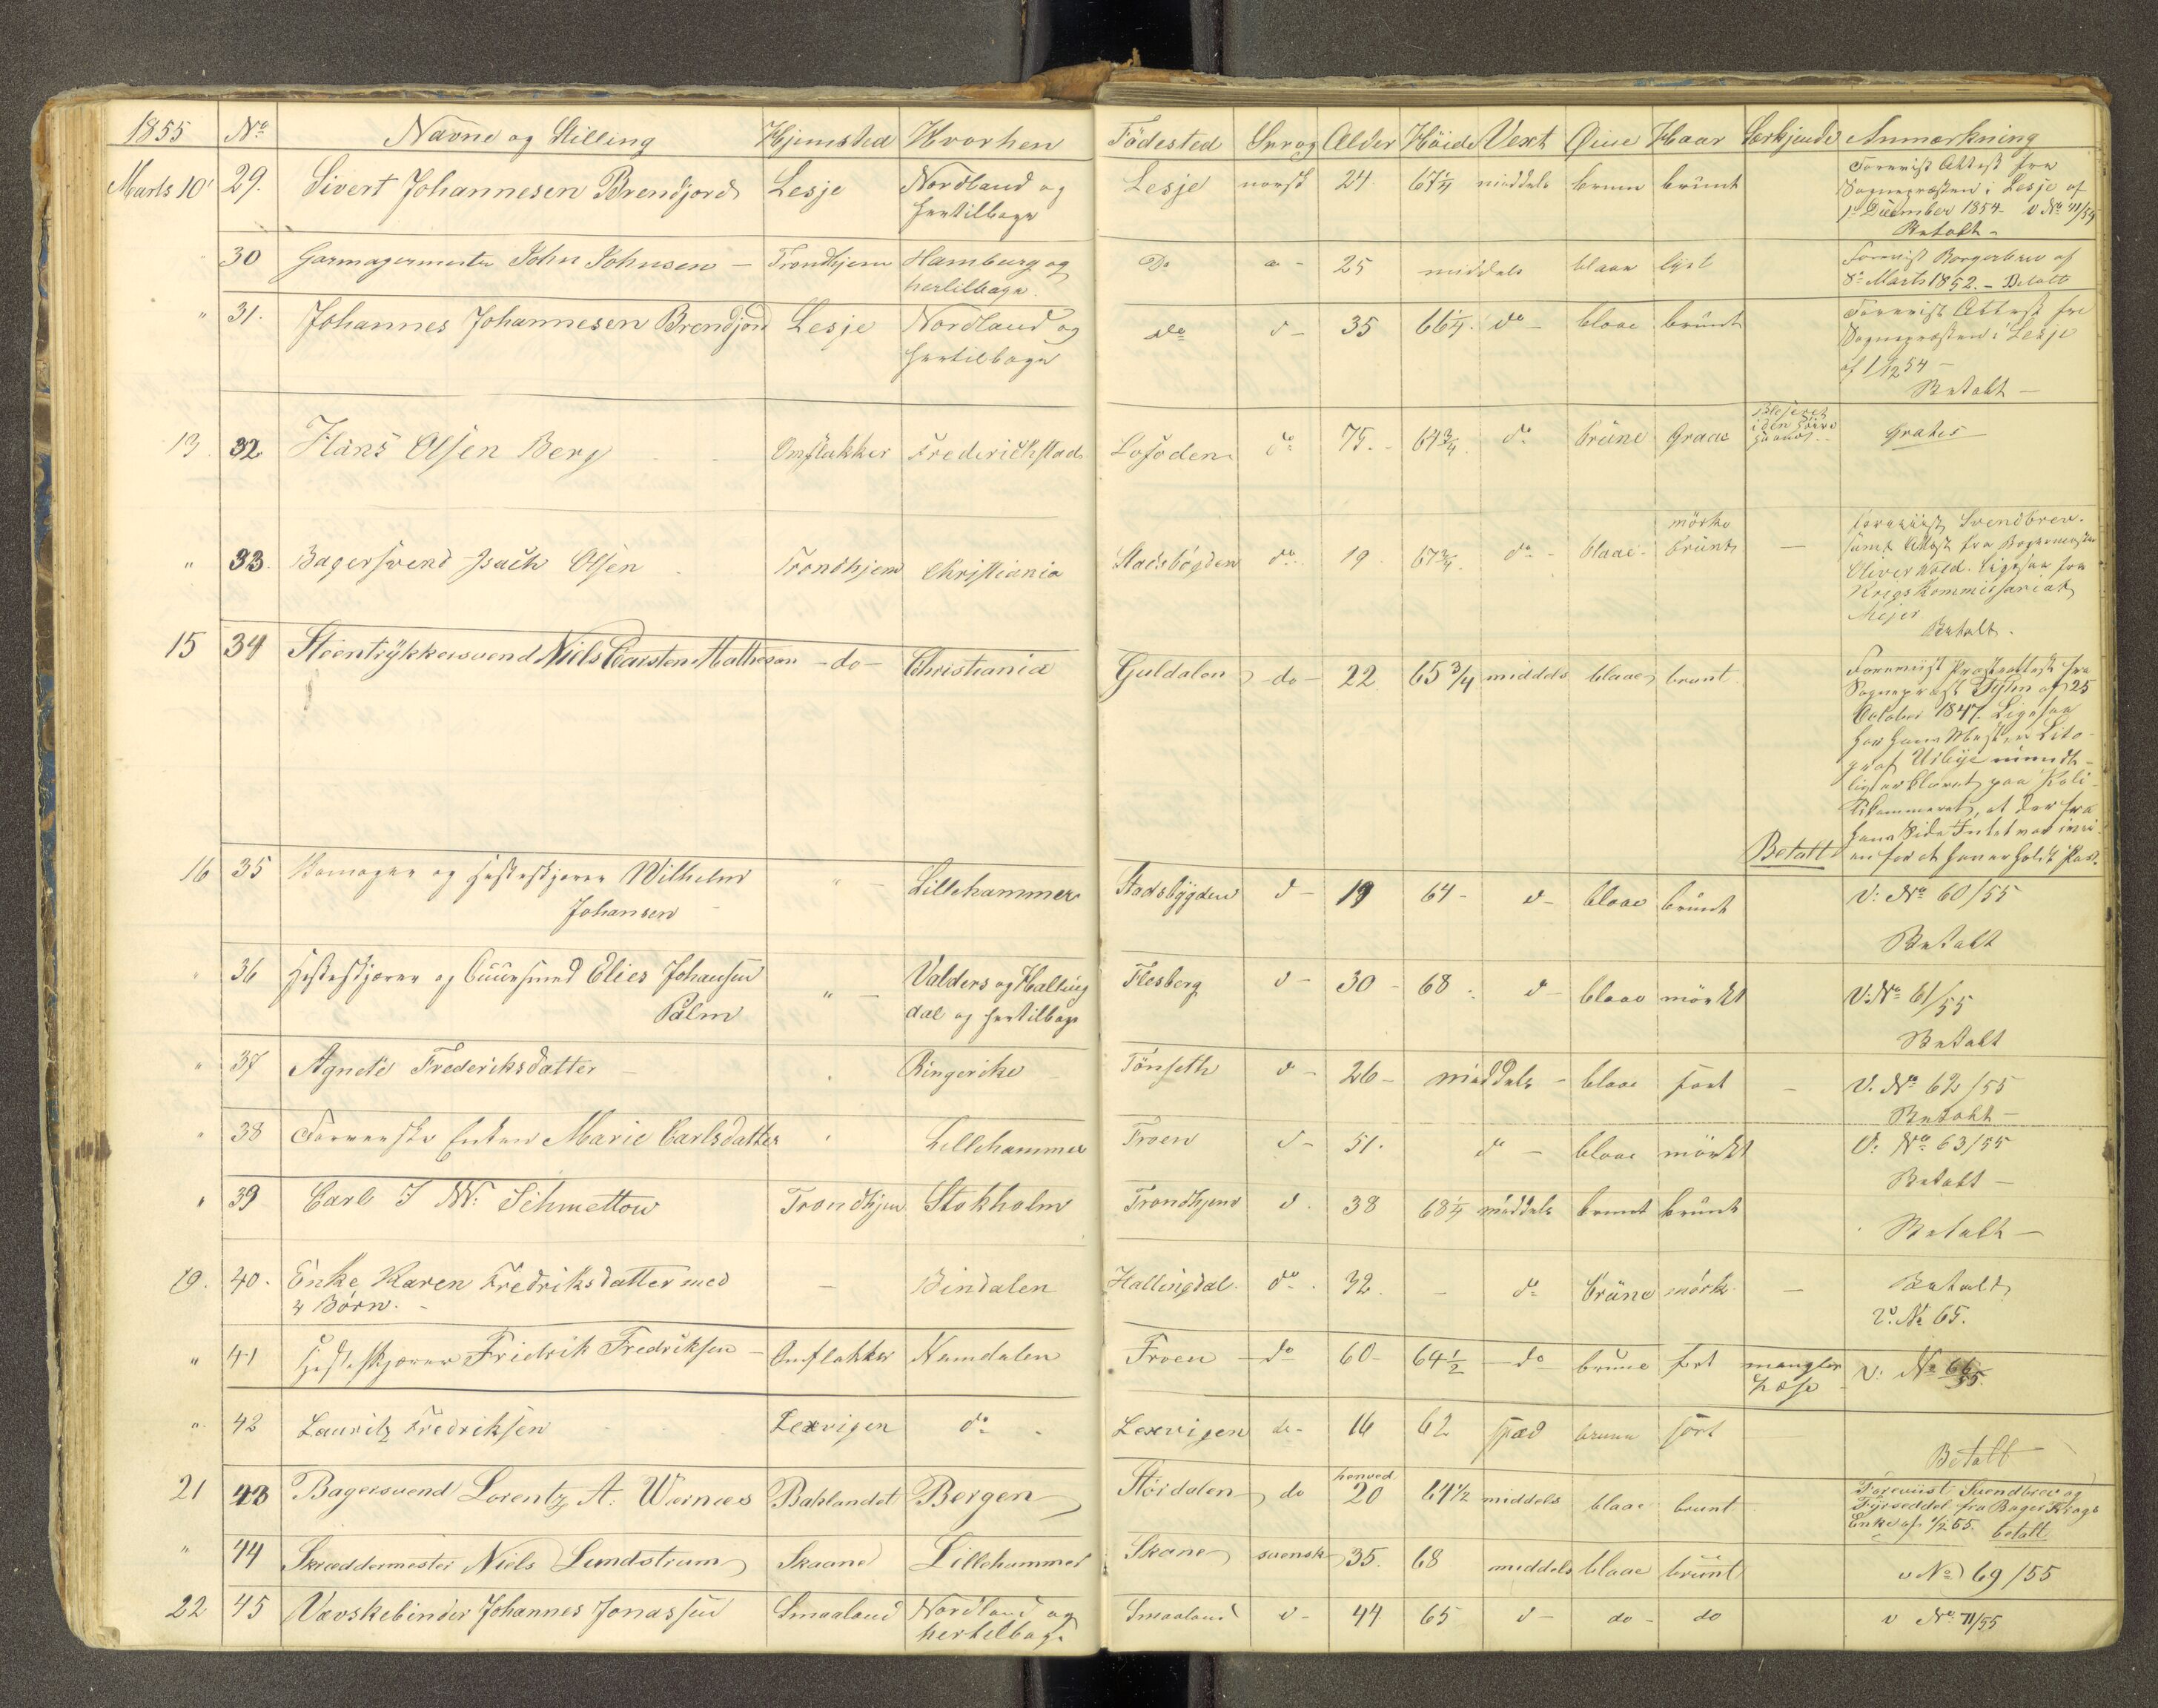 1855 No Navne og Stilling Hjemsted Hvorhen Födested Sprog Alder Höide Vext Öine Haar Særkjende Anmærkning
Marts 10 29. Sivert Johannesen Brendjord Lesje Nordland og Lesje norsk 24 67 1/4 middels brune brunt Forevist Attest fra
hertilbage Sognepræsten i Lesje af
1 December 1854 v No 41/54
Betalt
30 Garmagermester John Johnsen Trondhjem Hamburg og Do 25 middels blaae lyst Forevist Borgerbrev af
hertilbage 8 Marts 1852. Betalt
" 31. Johannes Johannesen Brendjord Lesje Nordland og do d 35 66 1/4 do blaae brunt Forevist Attest fra
hertilbage Sognepræsten i Lesje
af 1/12 54
Betalt
13 32 Hans Olsen Berg Omflakker Frederickstad Lofoden do 75. 64 3/4 do brune graae Gratis
" 33. Bagersvend Isach Olsen Trondhjem Christiania Stadsbögden do 19 67 3/4 do blaae mörke
brunt Foreviist Svendbrev
samt Attest fra Bagermester
Oliver Ligesaa fra
Krigskommissariat
Mejer
Betalt.
15 34 Steentrykkersvend Niels Carsten Mathesen do Christiania Guldalen do 22 65 3/4 middels blaae brunt Foreviist Præsteattest fra
Sognepræst af 25
October 1847. Ligesaa
har hans Mester Lito-
graf Udbye mundt-
lig erklæret paa Poli-
tikammeret, at der fra
hans Side Intet var iveien
Betalt for at han erholdt Pas.
16 35 og Hesteskjærer Wilhelm " Lillehammer Stadsbygden d 19 64 d blaae brunt V: No 60/55
Johansen Betalt
36 Hesteskjærer og Elies Johansen " Valders og Halling Flesberg d 30 68 d blaae mörkt V: No 61/55
Palm dal og hertilbage Betalt
" 37 Agnete Frederiksdatter Ringerike Tönseth d 26 middels blaae sort V. No 62/55
Betalt
" 38 Enken Marie Carlsdatter Lillehammer Froen d 51. d blaae mörkt V: No 63/55
Betalt
" 39 Carl J W: Schmettow Trondhjem Stokholm Trondhjem d. 38 68 1/4 middels brunt brunt Betalt
19. 40. Enke Karen Fredriksdatter med Bindalen Hallingdal do 32. do brune mörk Betalt
4 Börn. V. No 65.
" 41 Hesteskjærer Fridrik Fredriksen Omflakker Namdalen Froen do 60 64 1/2 do brune sort mangler V: No 66/55.
" 42 Lauritz Fredriksen Lexvigen do Lexvigen do 16 62 spæd brune sort
Betalt
21 43 Bagersvend Lorentz A. Wærnæs Baklandet Bergen Stördalen do henved
20 64 1/2 middels blaae brunt Foreviist Svendbrev og
Fyrseddel fra Bager Krogs
Enke af 55. betalt
" 44 Skræddermester Niels Lundstrum Skaane Lillehammer Skane svensk 35. 68 middels blaae brunt v No 69/55
22 45 Vævskebinder Johannes Jonassen Smaaland Nordland og Smaaland d 44 65 d do do v No 71/55
hertilbage